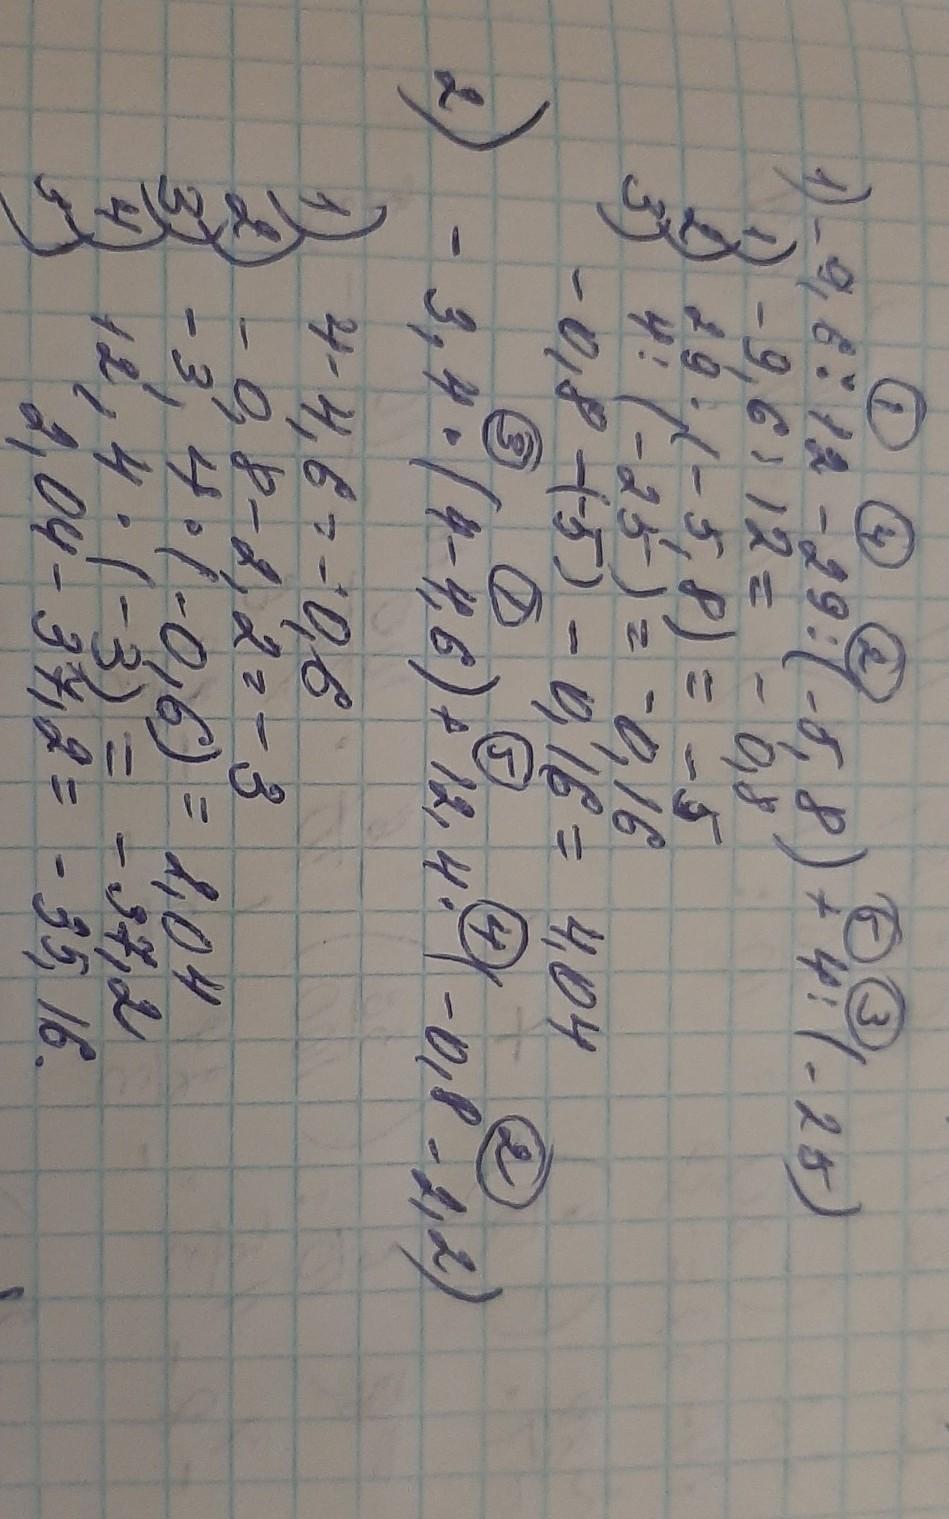 ① ④ ② ⑤ ③
1) -9,6:12 -29:(-5,8) + 4:(-25)
1) -9,6:12 = -0,8
2) 29:(-5,8) = -5
3) 4:(-25) = -0,16
-0,8 -(-5) - 0,16 = 4,04
③ ① ⑤ ④ ②
2) -3,4·(4-4,6)+12,4·(-0,8-2,2)
1) 4-4,6=-0,6
2) -0,8-2,2=-3
3) -3,4·(-0,6)=2,04
4) 12,4·(-3)=-37,2
5) 2,04-37,2=-35,16.